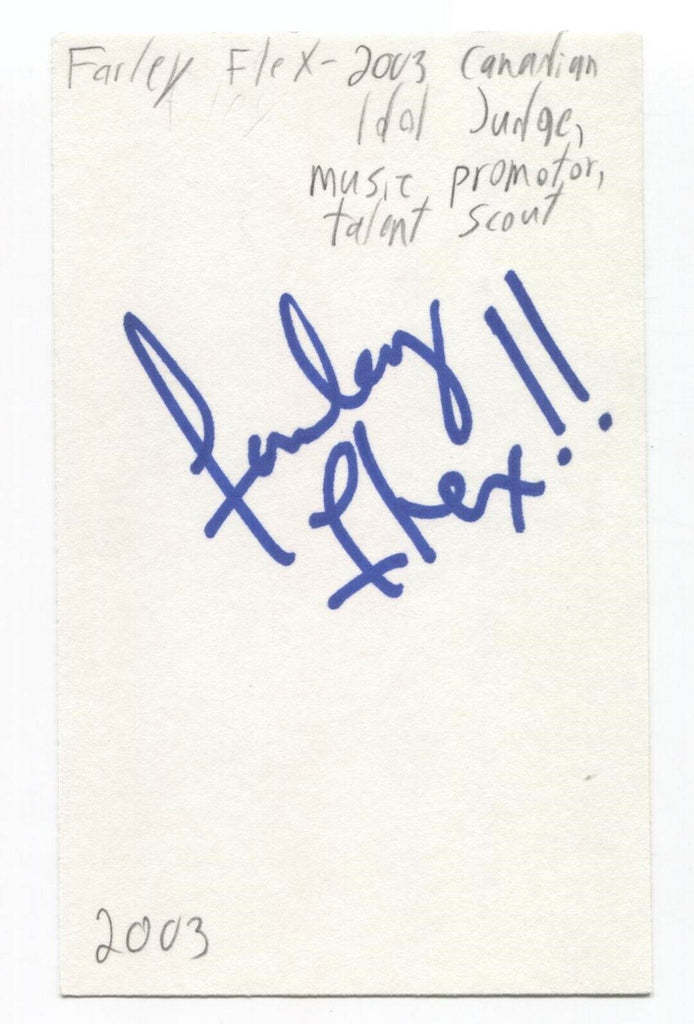 Farley Flex - 2003 Canadian
Idol Judge,
music promotor,
talent scout
Farley
Flex!!
2003